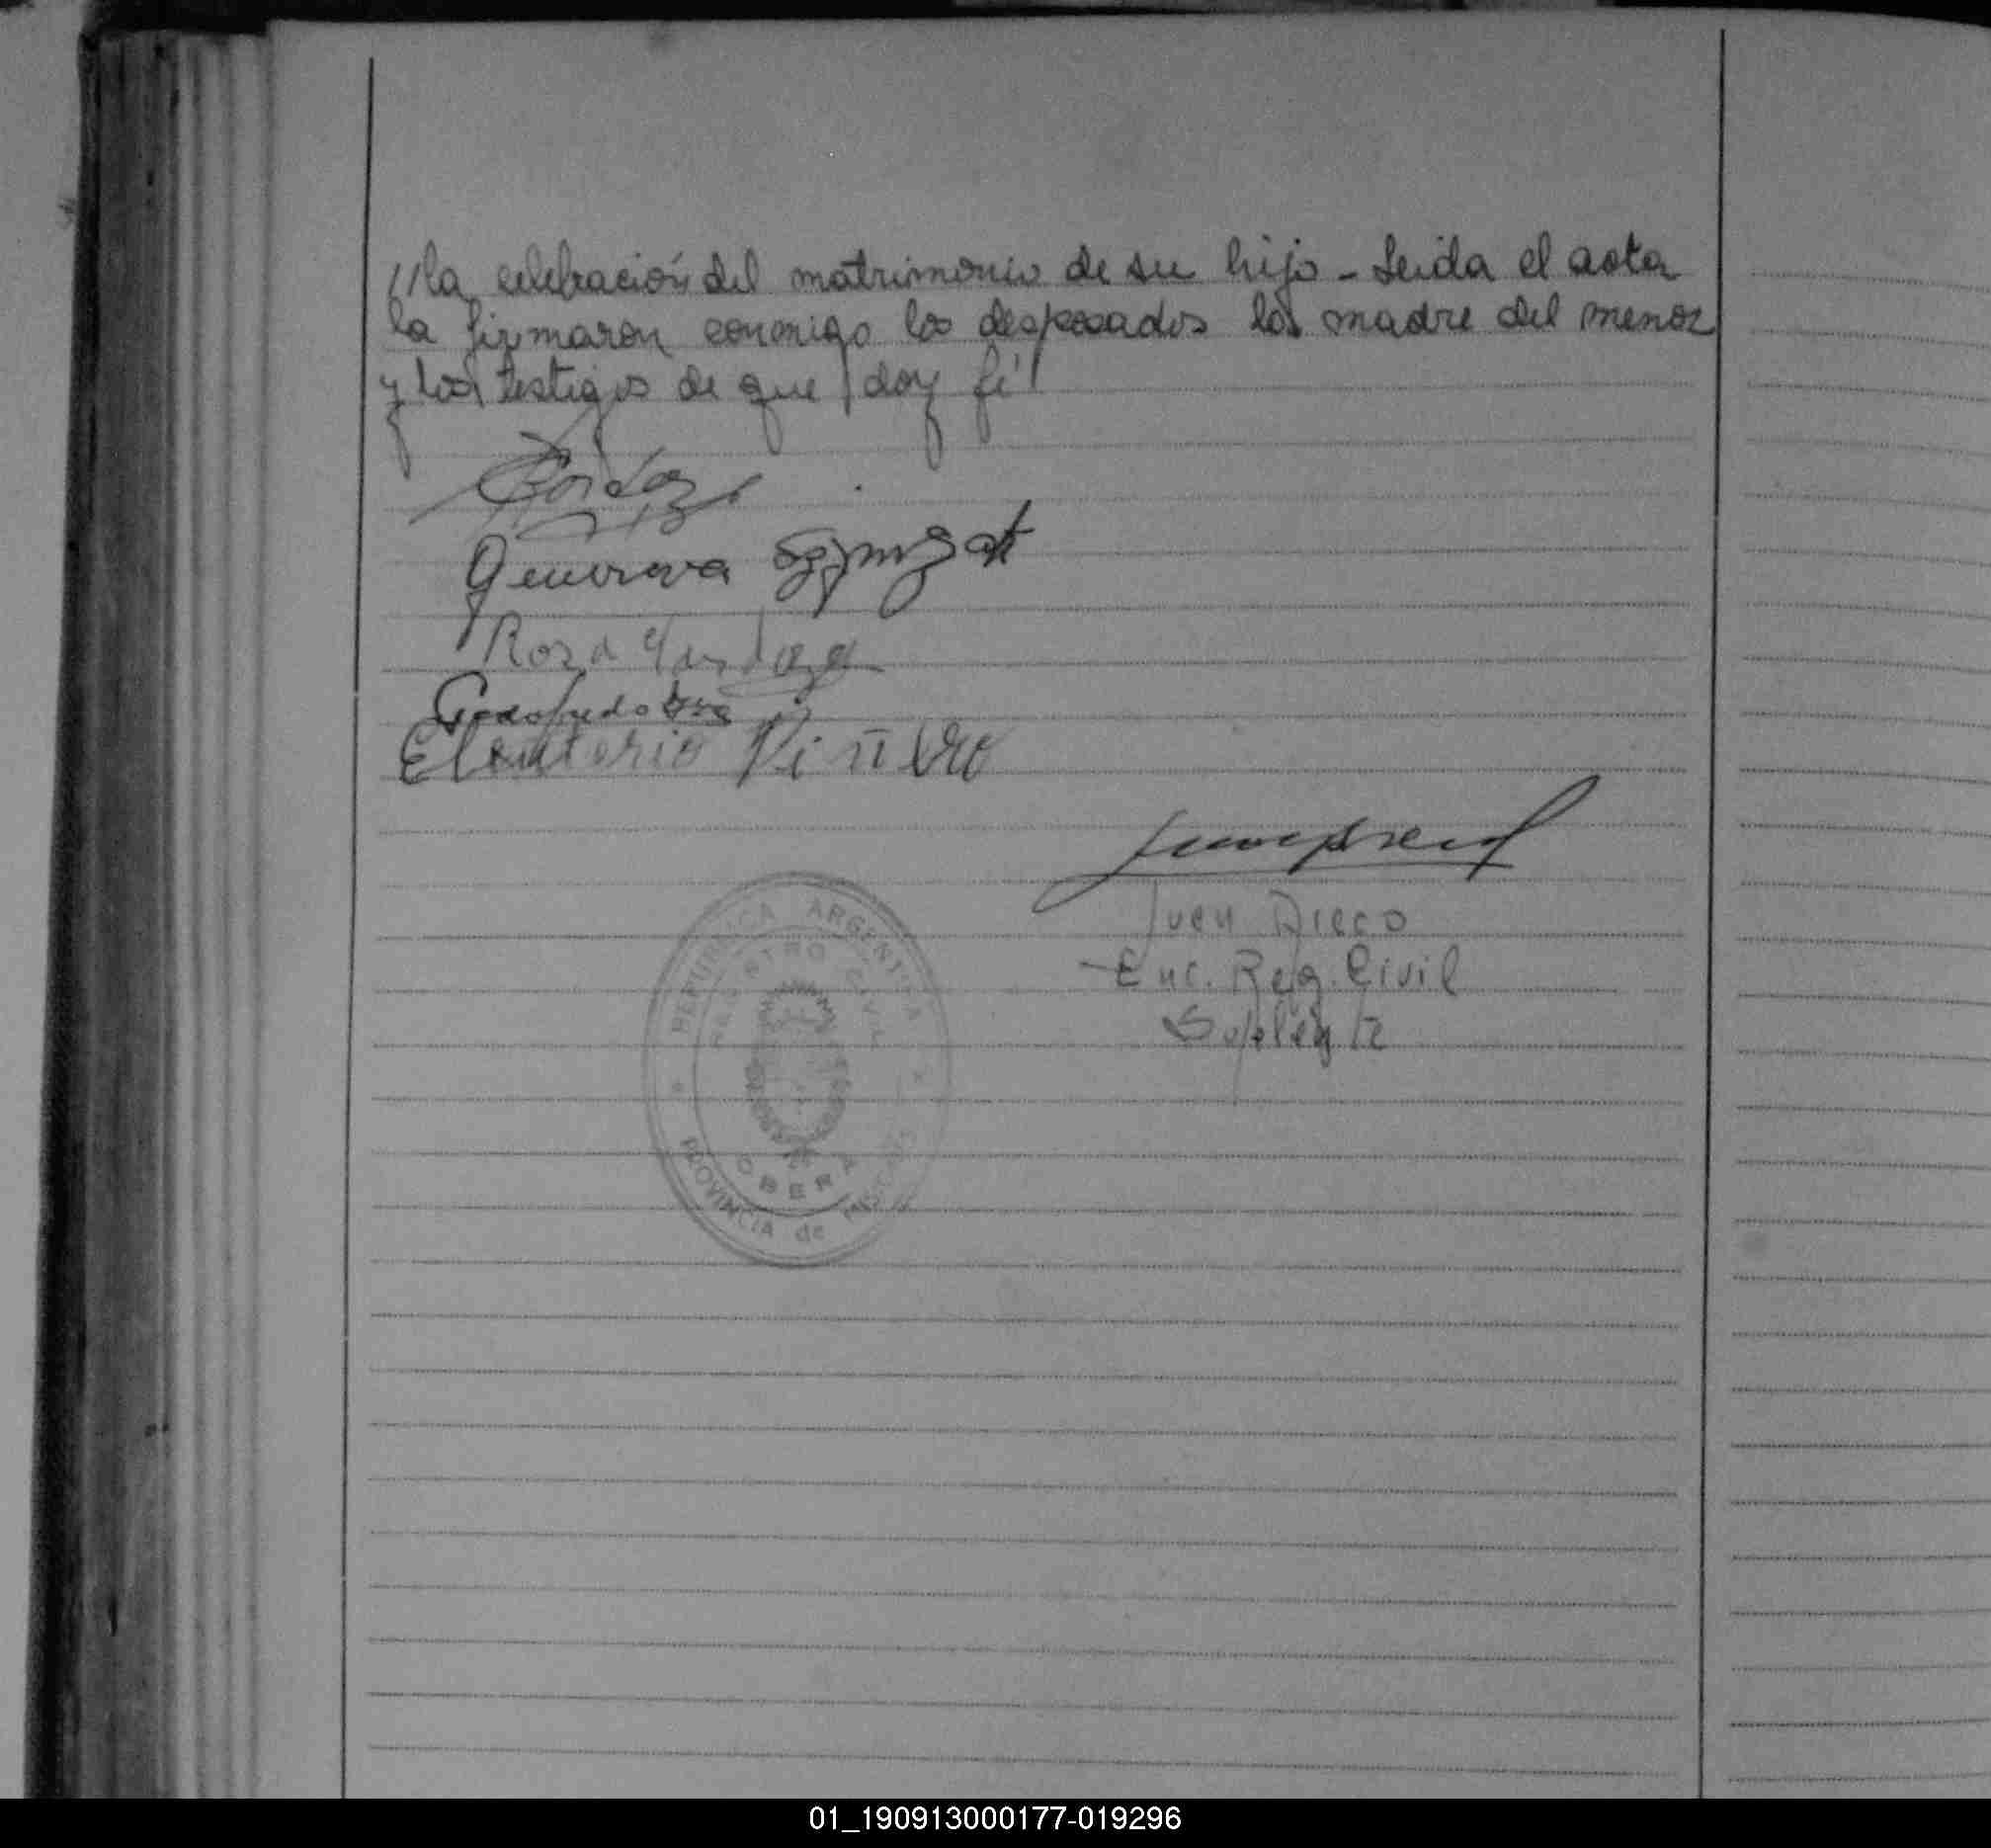 //la celebración del matrimonio de su hijo - Leida el acta
la firmaron conmigo los desposados la madre del menor
y los testigos de que doy fé//
Genoveva
Roza
Godofredo
Eleuterio Piñeiro
Juan Diego
Enc. Reg. Civil
Suplente
REPUBLICA ARGENTINA
REGISTRO CIVIL
OBERA
PROVINCIA de MISIONES
01_190913000177-019296